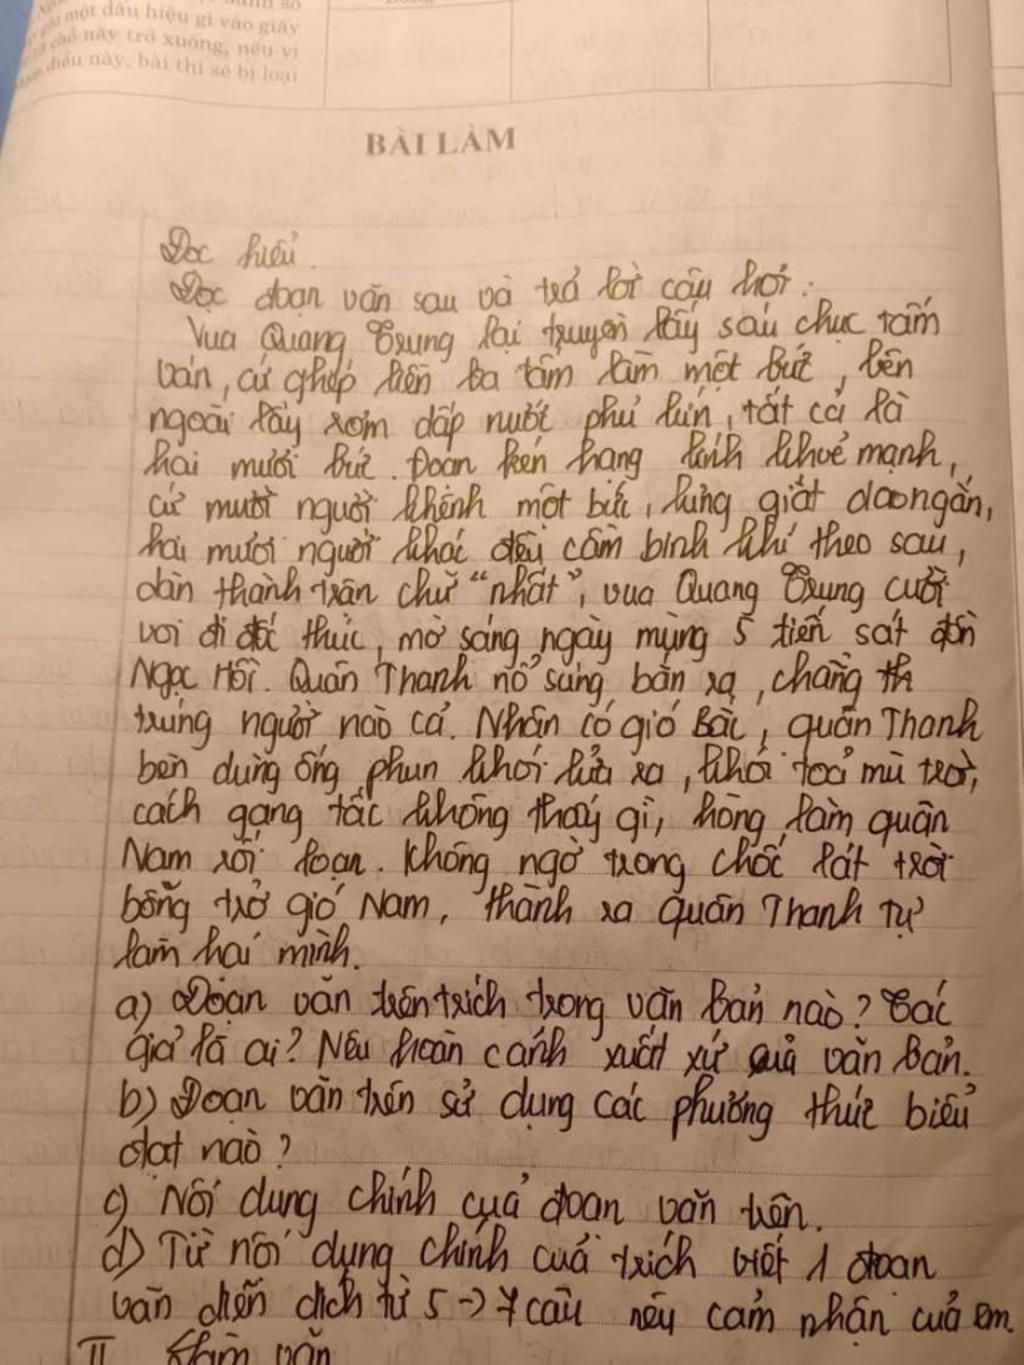 một dấu hiệu gì vào giấy
chỗ này trở xuống, nếu vi
điều này, bài thi sẽ bị loại
BÀI LÀM
Đọc hiểu.
Đọc đoạn văn sau và trả lời câu hỏi:
Vua Quang Trung lại truyền lấy sáu chục tấm
ván, cứ ghép liền ba tấm làm một bức, bên
ngoài lấy rơm dấp nước phủ kín, tất cả là
hai mươi bức. Đoạn kén hạng lính khoẻ mạnh,
cứ mười người khênh một bức, lưng giắt dao ngắn,
hai mươi người khác đều cầm binh khí theo sau,
dàn thành trận chữ "nhất", vua Quang Trung cưỡi
voi đi đốc thúc, mờ sáng ngày mùng 5 tiến sát đồn
Ngọc Hồi. Quân Thanh nổ súng bắn ra, chẳng th
trúng người nào cả. Nhân có gió Bắc, quân Thanh
bèn dùng ống phun khói lửa ra, khói toả mù trời,
cách gang tấc không thấy gì, hòng làm quân
Nam rối loạn. Không ngờ trong chốc lát trời
bỗng trở gió Nam, thành ra quân Thanh tự
làm hại mình.
a) Đoạn văn trên trích trong văn bản nào? Tác
giả là ai? Nêu hoàn cảnh xuất xứ của văn bản.
b) Đoạn văn trên sử dụng các phương thức biểu
đạt nào?
c) Nội dung chính của đoạn văn trên.
d) Từ nội dung chính của trích viết 1 đoạn
văn diễn dịch từ 5 -> 7 câu nêu cảm nhận của em
II Làm văn